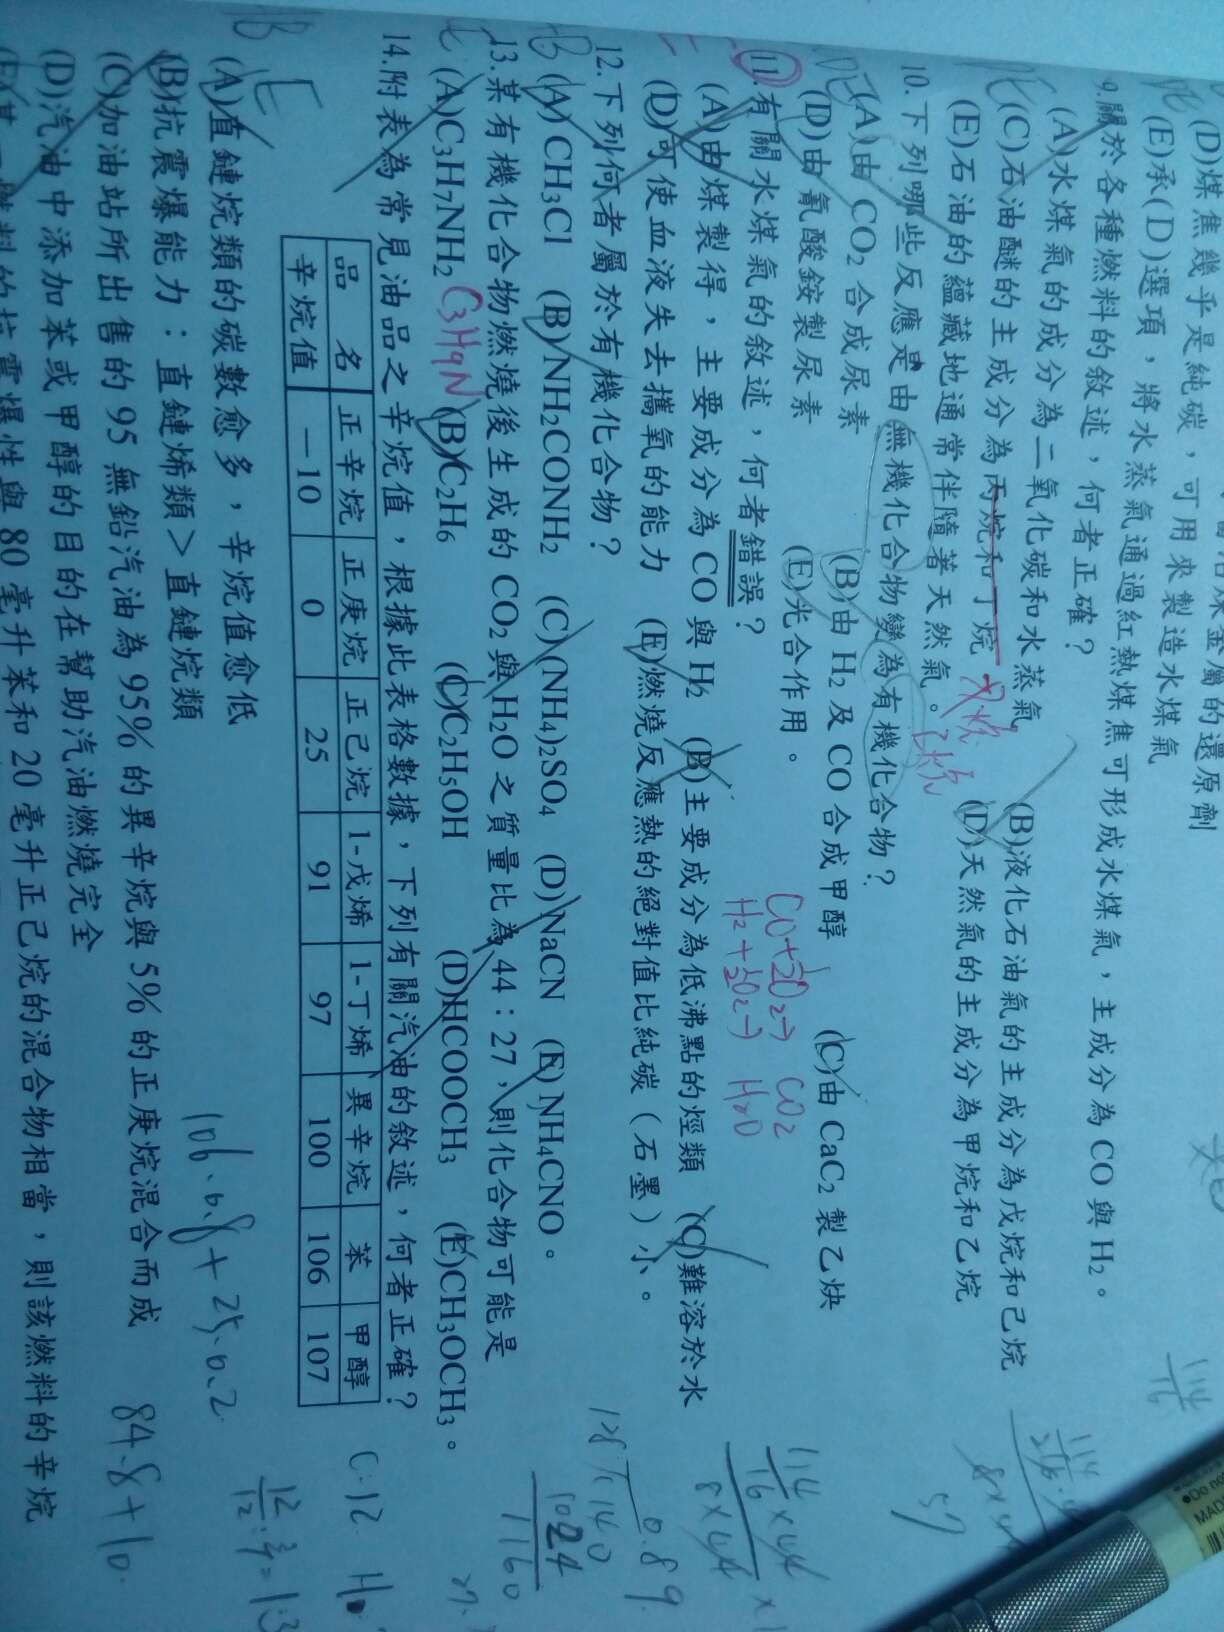 (D)煤焦幾乎是純碳，可用來製造水煤氣
(E)承(D)選項，將水蒸氣通過紅熱煤焦可形成水煤氣，主成分為CO與H₂。
9.關於各種燃料的敘述，何者正確？
(A)水煤氣的成分為二氧化碳和水蒸氣 (B)液化石油氣的主成分為戊烷和己烷
(C)石油醚的主成分為丙烷和丁烷 戊烷 己烷 (D)天然氣的主成分為甲烷和乙烷
(E)石油的蘊藏地通常伴隨著天然氣。
10.下列哪些反應是由無機化合物變為有機化合物？
(A)由CO₂合成尿素 (B)由H₂及CO合成甲醇 (C)由CaC₂製乙炔
(D)由氰酸銨製尿素 (E)光合作用。
CO+½O₂→ CO₂
H₂+½O₂→ H₂O
11.有關水煤氣的敘述，何者錯誤？
(A)由煤製得，主要成分為CO與H₂ (B)主要成分為低沸點的烴類 (C)難溶於水
(D)可使血液失去攜氧的能力 (E)燃燒反應熱的絕對值比純碳（石墨）小。
12.下列何者屬於有機化合物？
(A)CH₃Cl (B)NH₂CONH₂ (C)(NH₄)₂SO₄ (D)NaCN (E)NH₄CNO。
13.某有機化合物燃燒後生成的CO₂與H₂O之質量比為44：27，則化合物可能是
(A)C₃H₇NH₂ C₃H₉N (B)C₂H₆ (C)C₂H₅OH (D)HCOOCH₃ (E)CH₃OCH₃。
14.附表為常見油品之辛烷值，根據此表格數據，下列有關汽油的敘述，何者正確？
品名 正辛烷 正庚烷 正己烷 1-戊烯 1-丁烯 異辛烷 苯 甲醇
辛烷值 －10 0 25 91 97 100 106 107
(A)直鏈烷類的碳數愈多，辛烷值愈低
(B)抗震爆能力：直鏈烯類＞直鏈烷類
(C)加油站所出售的95無鉛汽油為95%的異辛烷與5%的正庚烷混合而成
(D)汽油中添加苯或甲醇的目的在幫助汽油燃燒完全
(E)某一燃料的抗震爆性與80毫升苯和20毫升正己烷的混合物相當，則該燃料的辛烷
106×0.8+25×0.2
84.8+10